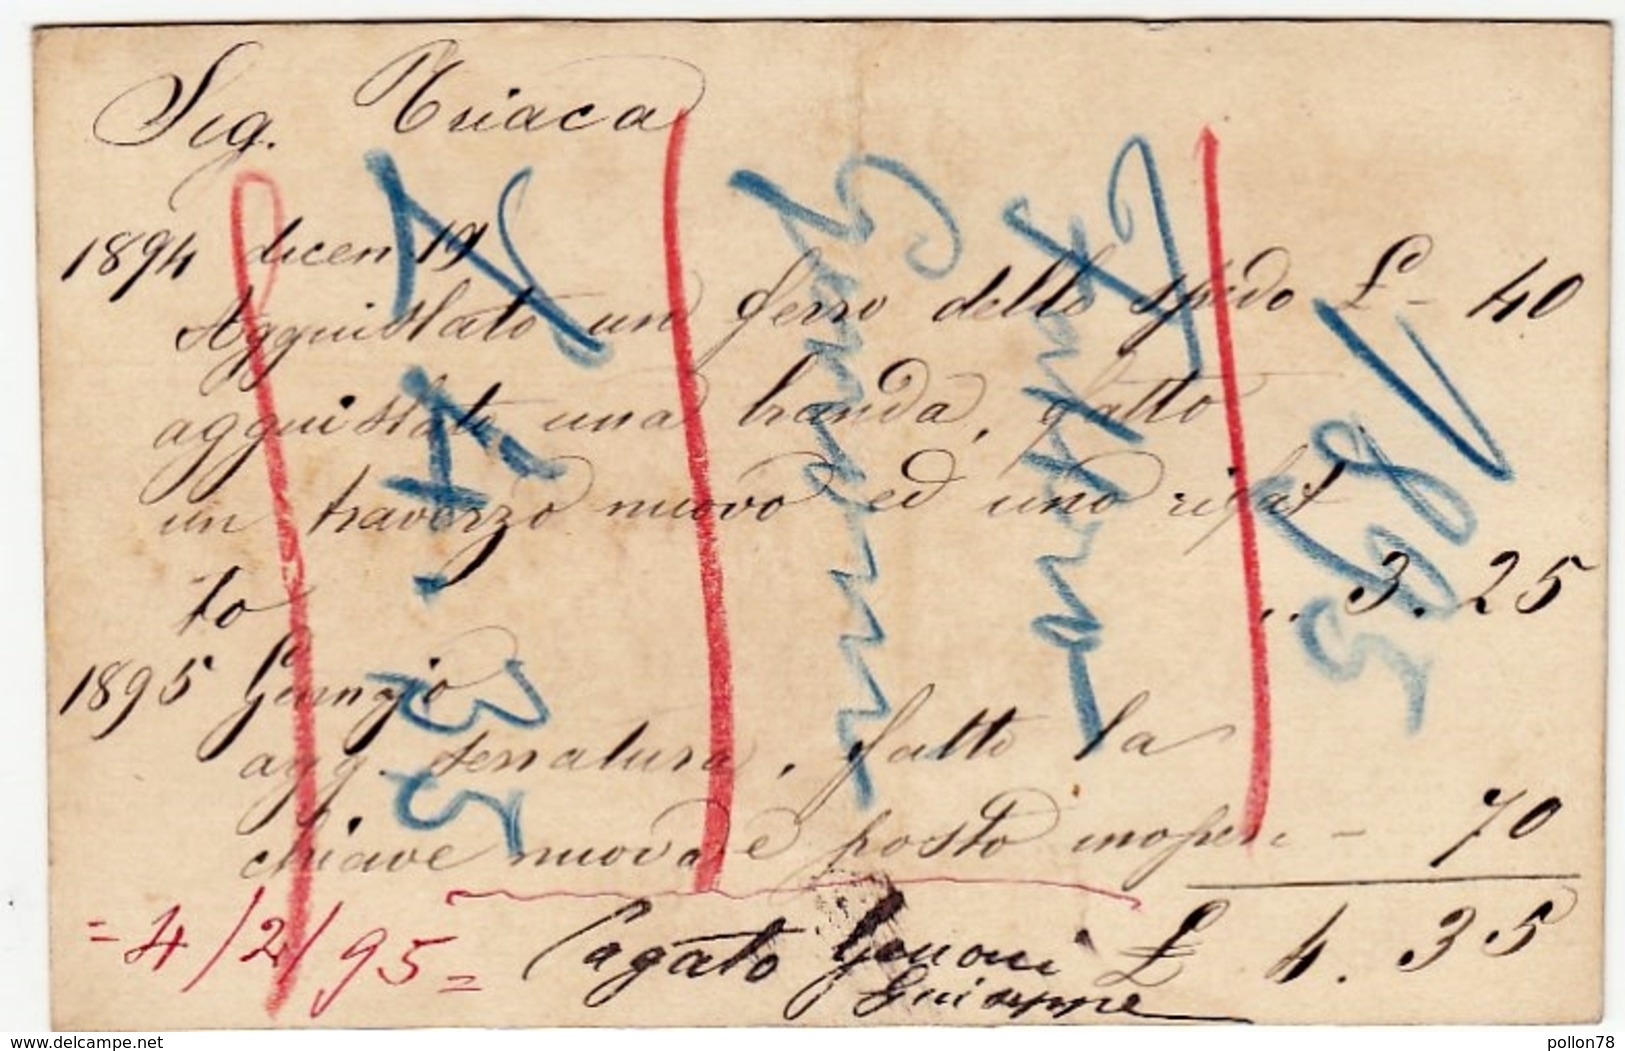 Sig. Triaca
1894 dicem 19
Agguistato un ferro dello spido £ - 40
agguistato una branda, fatto
un traverzo nuovo ed uno rifat
to .. 3. 25
1895 Giungio
agg. serratura, fatto la
chiave nuova e posto inopera - 70
= 4/2/95 = Pagato Genoni £ 4. 35
Guiseppe
£ 4.35
Fattura
1895
www.delcampe.net
pollon78